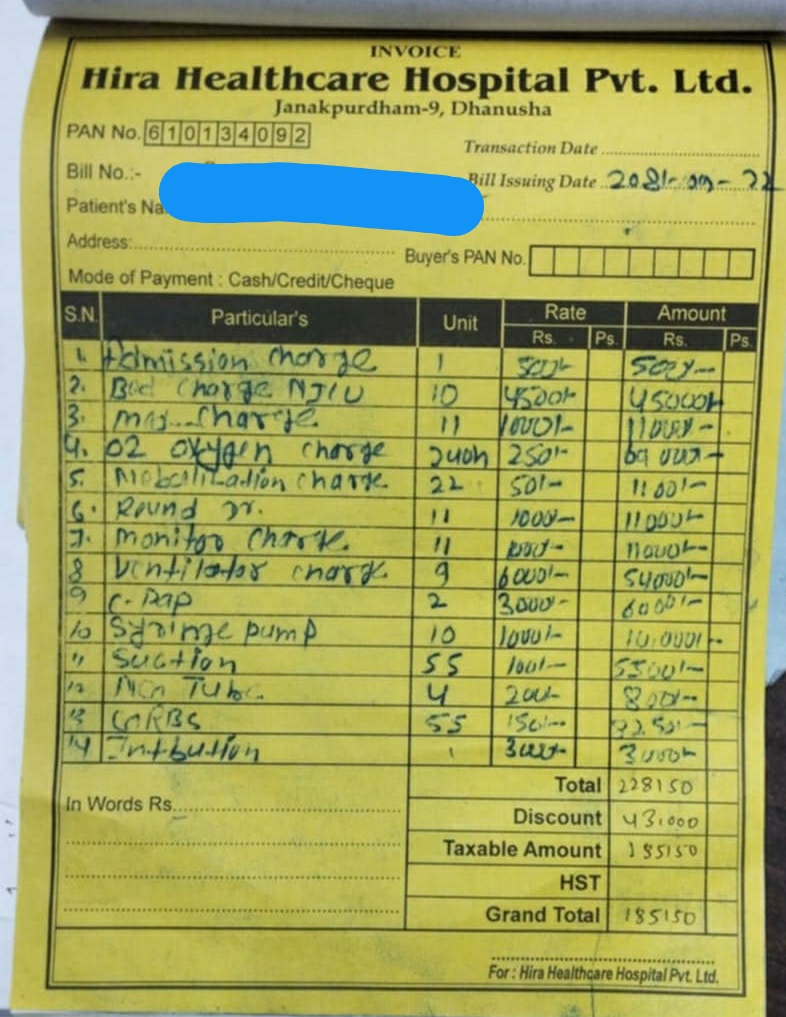 INVOICE
Hira Healthcare Hospital Pvt. Ltd.
Janakpurdham-9, Dhanusha
PAN No. 610134092
Transaction Date
Bill No.:-
Bill Issuing Date 2081-09-22
Patient's Na
Address:
Buyer's PAN No.
Mode of Payment : Cash/Credit/Cheque
S.N. Particular's Unit Rate Amount
Rs. Ps. Rs. Ps.
1. Admission charge 1 500/- 500/-
2. Bed charge NICU 10 4500/- 45000/-
3. charge 11 1000/- 11000/-
4. O2 oxygen charge 240h 250/-
5. charge 22 50/- 1100/-
6. Round Dr. 11 1000/- 11000/-
7. Monitor charge 11 1000/- 11000/-
8 Ventilator charge 9 6000/- 54000/-
9 C-Pap 2 3000/- 6000/-
10 Syringe pump 10 1000/- 10,000/-
11 Suction 55 100/- 5500/-
12 Tube 4 200/- 800/-
13 GRBS 55 150/-
14 1 3000/- 3000/-
Total 228150
In Words Rs.
Discount 43,000
Taxable Amount 185150
HST
Grand Total 185150
For : Hira Healthcare Hospital Pvt. Ltd.